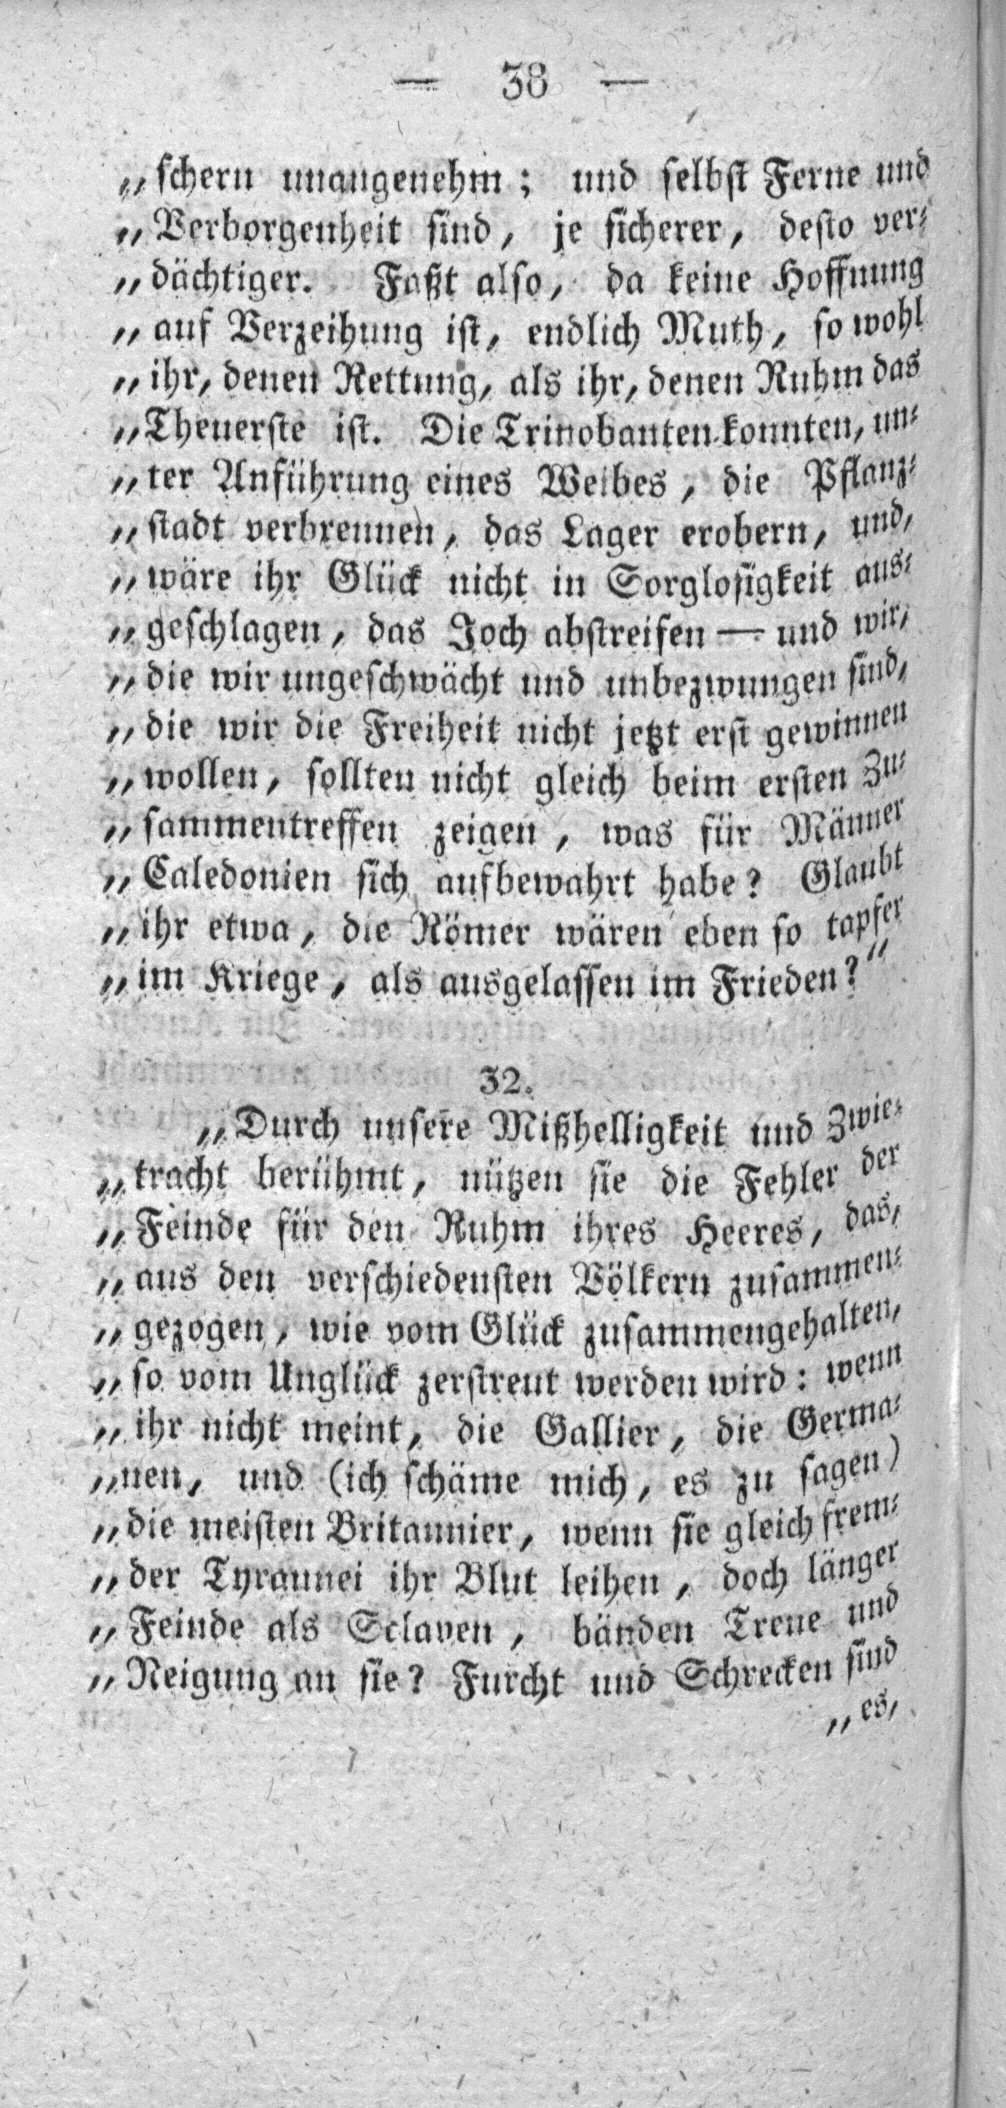 — 38 —
„schern unangenehm; und selbst Ferne und
„Verborgenheit sind, je sicherer, desto ver-
„dächtiger. Faßt also, da keine Hoffnung
„auf Verzeihung ist, endlich Muth, so wohl
„ihr, denen Rettung, als ihr, denen Ruhm das
„Theuerste ist. Die Trinobanten konnten, un-
„ter Anführung eines Weibes, die Pflanz-
„stadt verbrennen, das Lager erobern, und,
„wäre ihr Glück nicht in Sorglosigkeit aus-
„geschlagen, das Joch abstreifen — und wir,
„die wir ungeschwächt und unbezwungen sind,
„die wir die Freiheit nicht jetzt erst gewinnen
„wollen, sollten nicht gleich beim ersten Zu-
„sammentreffen zeigen, was für Männer
„Caledonien sich aufbewahrt habe? Glaubt
„ihr etwa, die Römer wären eben so tapfer
„im Kriege, als ausgelassen im Frieden?“
32.
„Durch unsere Mißhelligkeit und Zwie-
„tracht berühmt, nützen sie die Fehler der
„Feinde für den Ruhm ihres Heeres, das,
„aus den verschiedensten Völkern zusammen-
„gezogen, wie vom Glück zusammengehalten,
„so vom Unglück zerstreut werden wird: wenn
„ihr nicht meint, die Gallier, die Germa-
„nen, und (ich schäme mich, es zu sagen)
„die meisten Britannier, wenn sie gleich frem-
„der Tyrannei ihr Blut leihen, doch länger
„Feinde als Sclaven, bänden Treue und
„Neigung an sie? Furcht und Schrecken sind
„es,